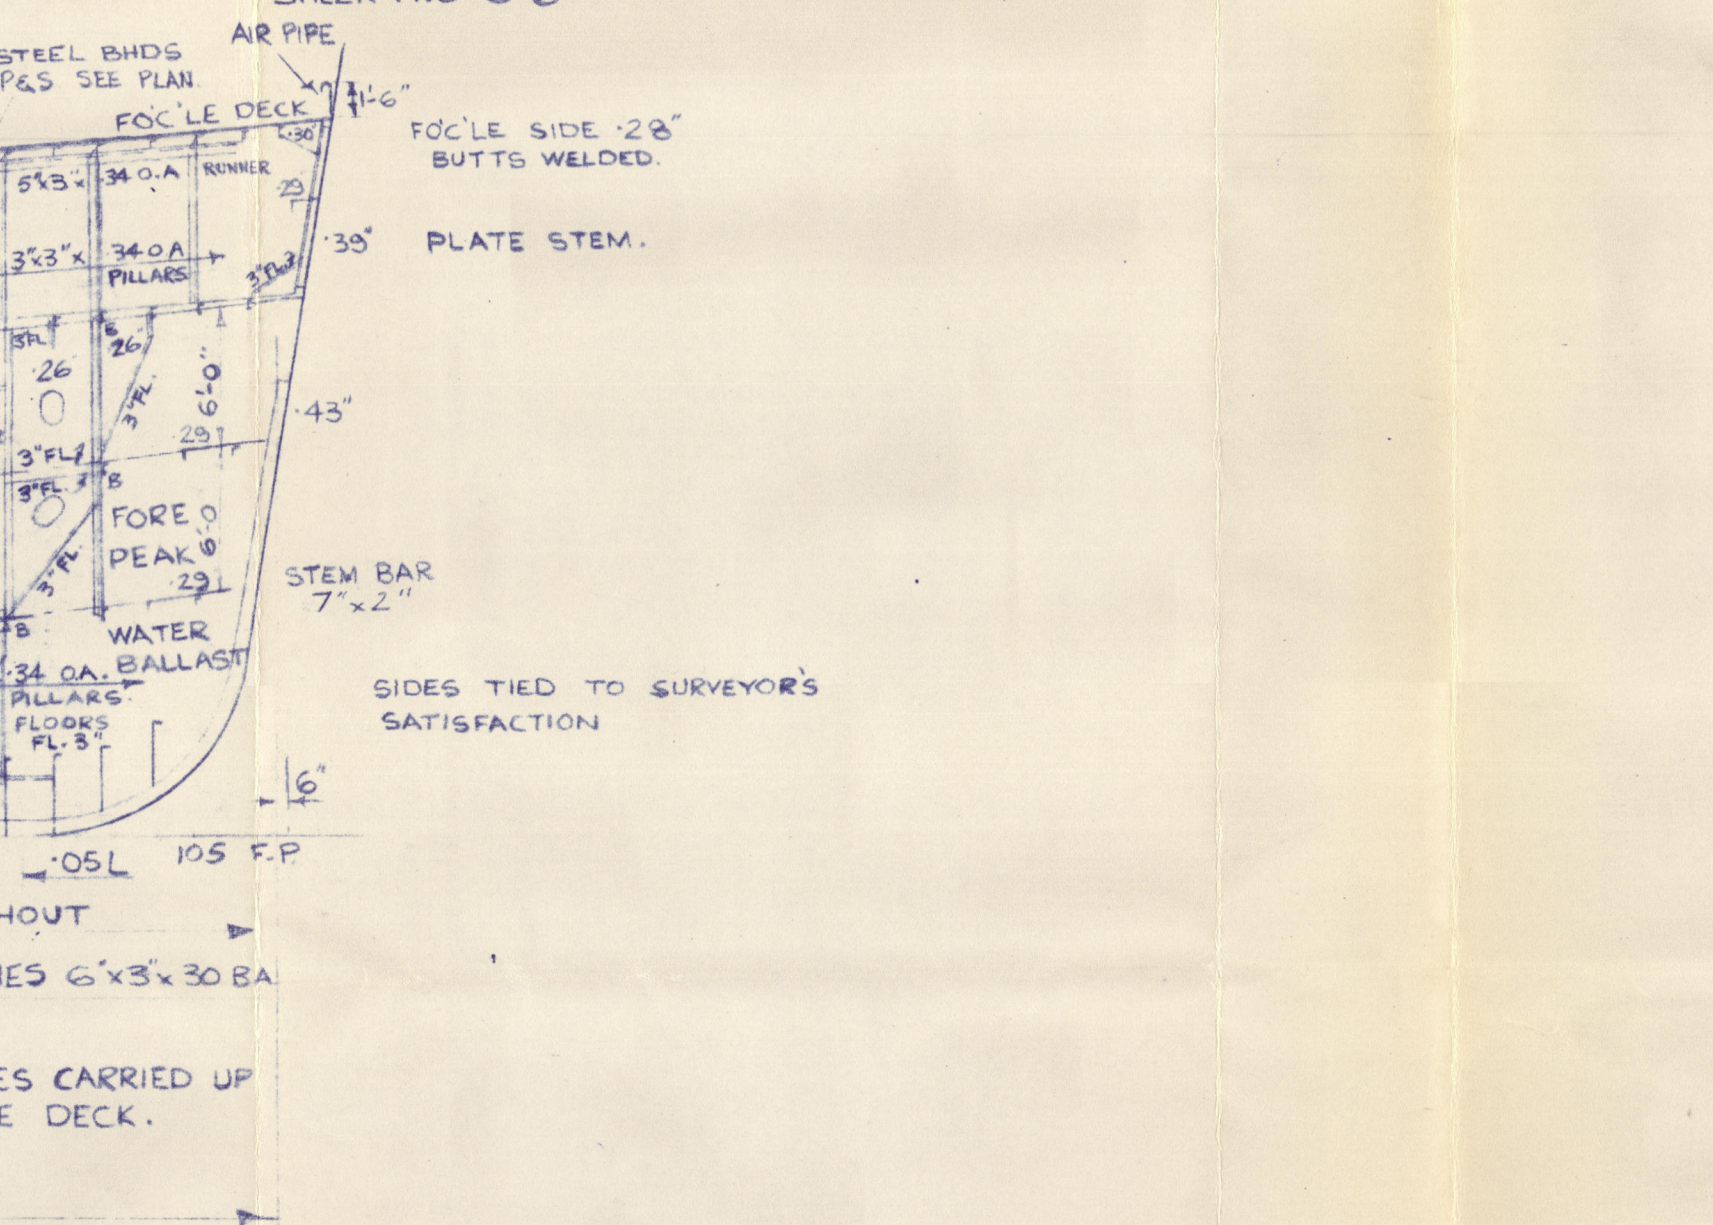 AIR PIPE
STEEL BHDS
P&S SEE PLAN.
1'-6"
FO'C'LE DECK
.30"
FO'C'LE SIDE .28"
BUTTS WELDED.
5"x3"x .34 O.A RUNNER
.29
.39" PLATE STEM.
3"x3"x .34 O A
PILLARS
3"FL.
3"FL
B
.26
.26
3"FL.
6'-0"
.43"
.29
3"FL.
3"FL.
B
FORE
PEAK
6'-0
3"FL.
.29
STEM BAR
7"x2"
B
WATER
BALLAST
.34 O.A.
PILLARS.
FLOORS
FL. 3"
SIDES TIED TO SURVEYOR'S
SATISFACTION
6"
.05L
105 F.P.
HOUT
IES 6"x3"x.30 BA
ES CARRIED UP
E DECK.